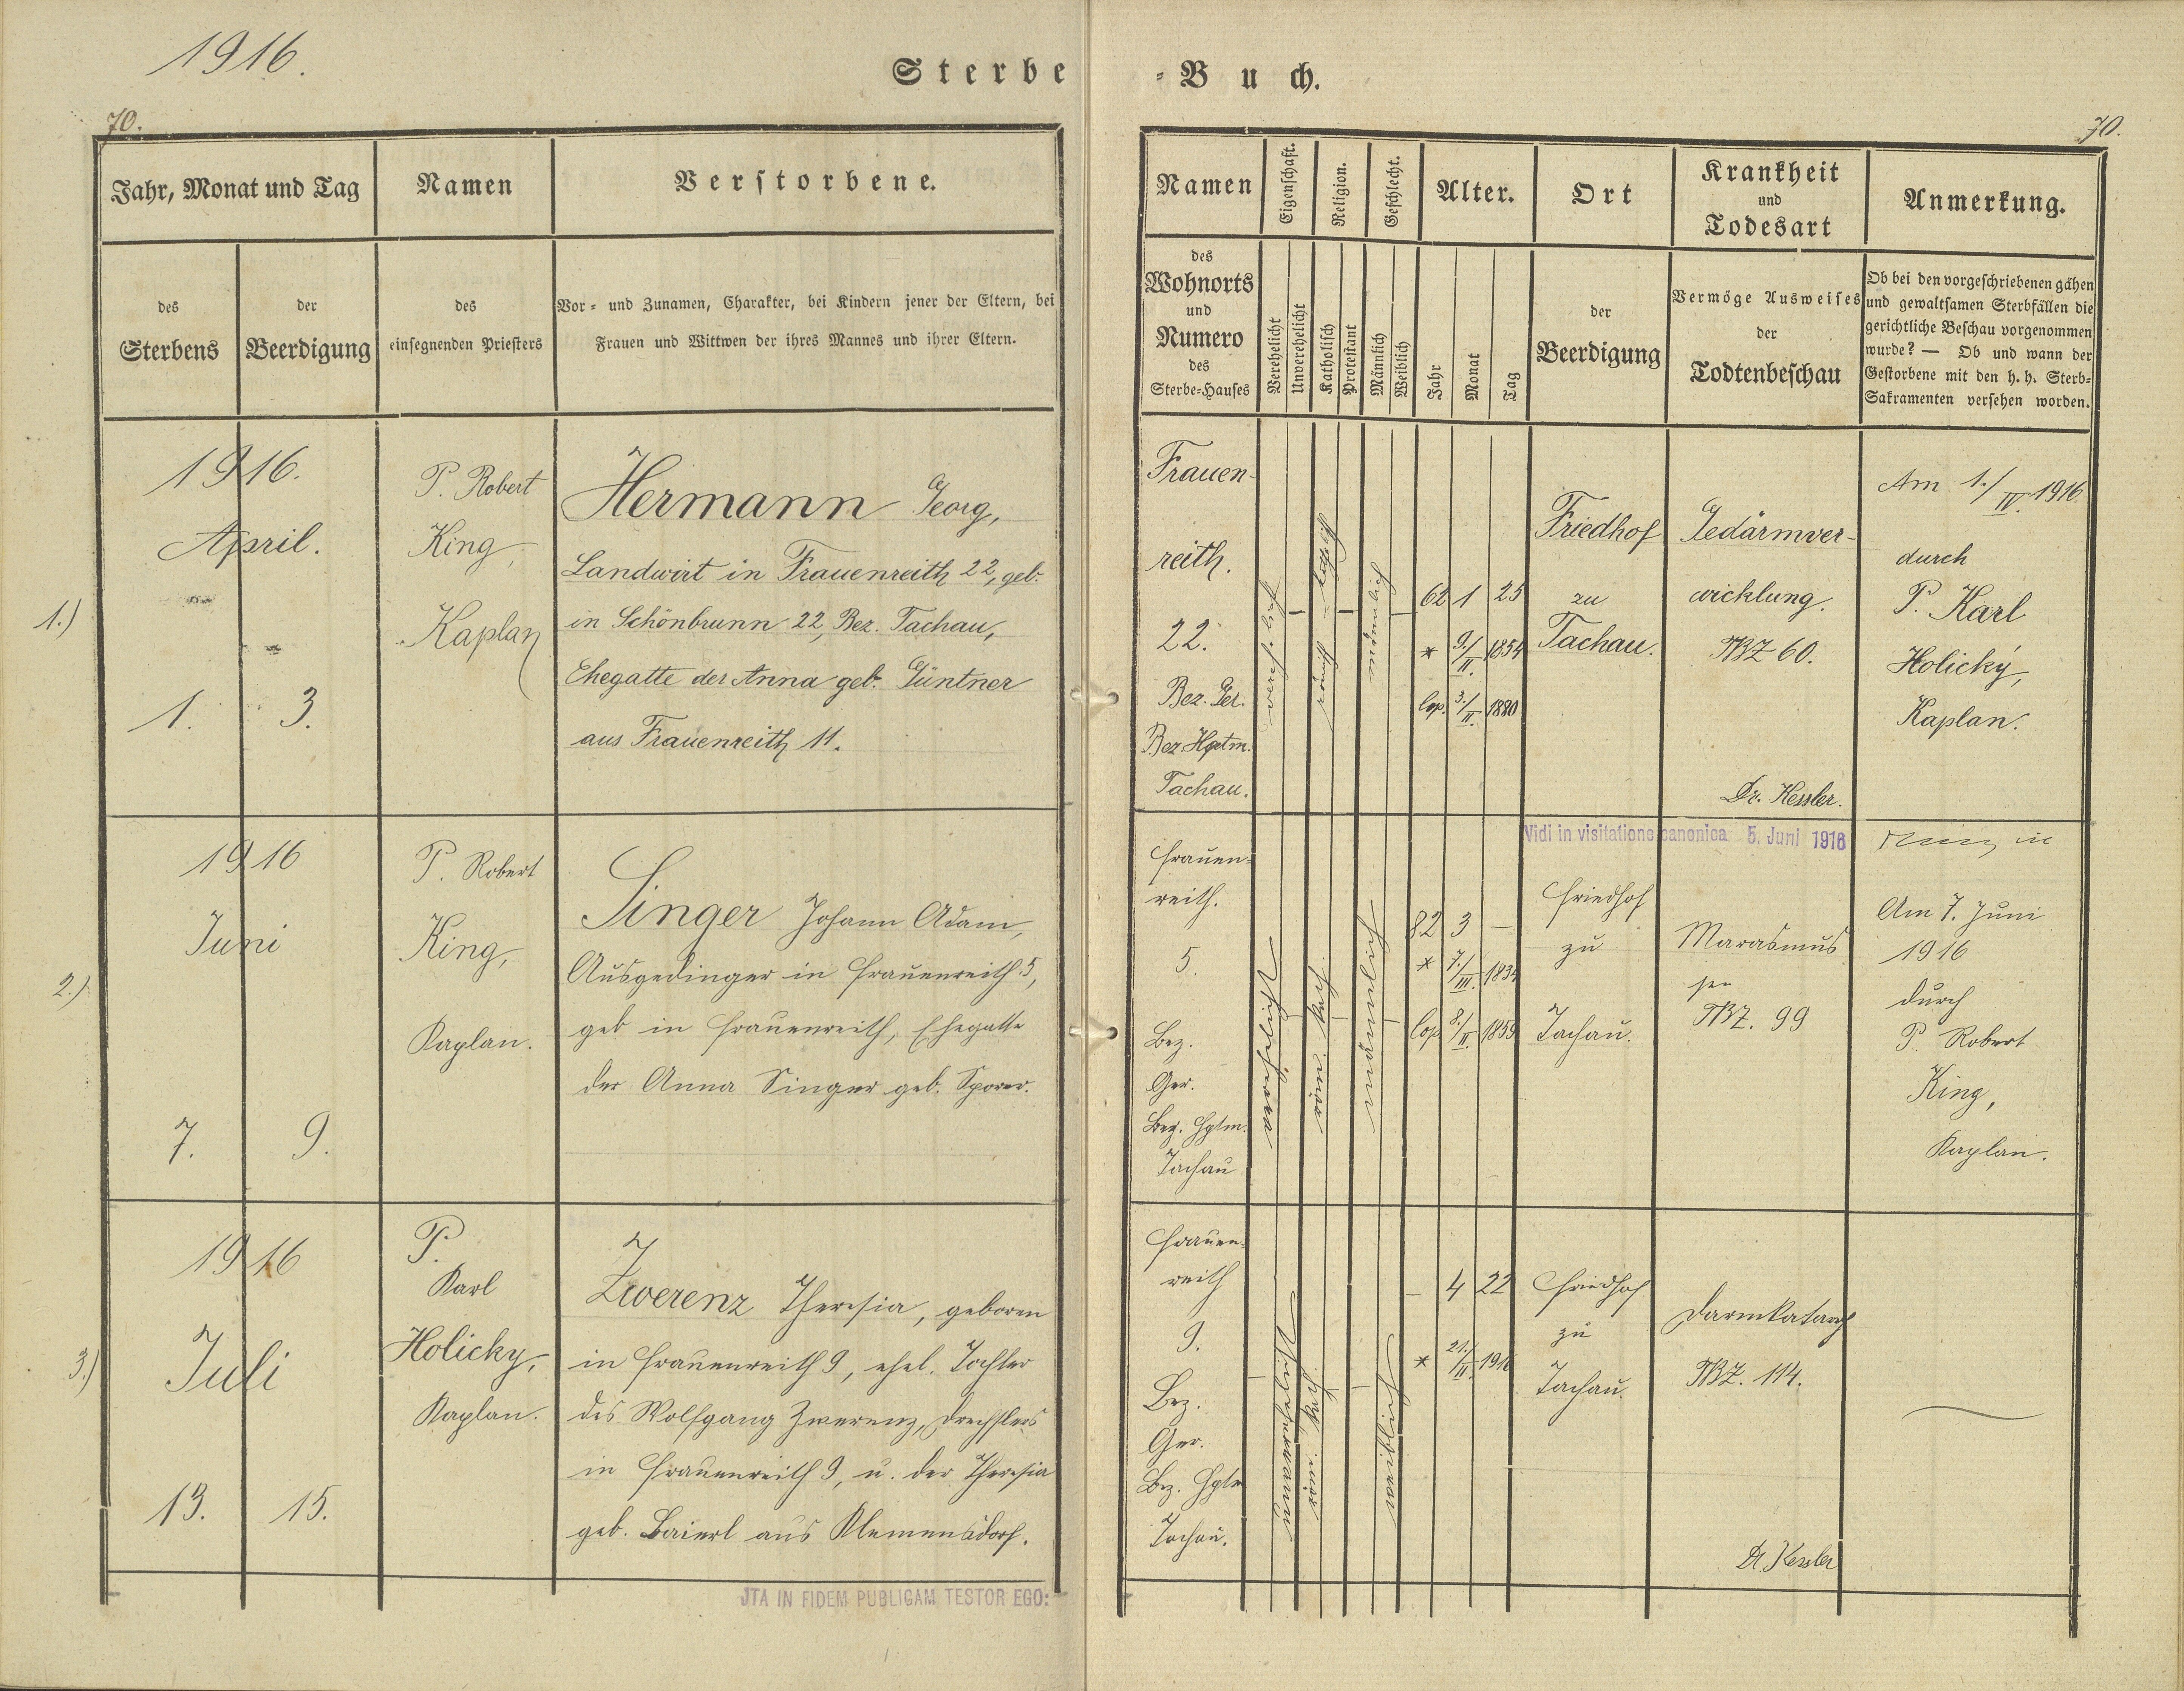 1916.
Sterbe-Buch.
70.
70.
Jahr, Monat und Tag
des Sterbens
der Beerdigung
Namen
des
einsegnenden Priesters
Verstorbene.
Vor- und Zunamen, Charakter, bei Kindern jener der Eltern, bei
Frauen und Wittwen der ihres Mannes und ihrer Eltern.
Namen
des
Wohnorts
und
Numero
des
Sterbe-Hauses
Eigenschaft.
Verehelicht
Unverehelicht
Religion.
Katholisch
Protestant
Geschlecht.
Männlich
Weiblich
Alter.
Jahr
Monat
Tag
Ort
der
Beerdigung
Krankheit
und
Todesart
Vermöge Ausweises
der
Todtenbeschau
Anmerkung.
Ob bei den vorgeschriebenen gähen
und gewaltsamen Sterbfällen die
gerichtliche Beschau vorgenommen
wurde? — Ob und wann der
Gestorbene mit den h. h. Sterb-
Sakramenten versehen worden.
1.)
1916.
April.
1.
3.
P. Robert
King,
Kaplan
Hermann Georg,
Landwirt in Frauenreith 22, geb.
in Schönbrunn 22, Bez. Tachau,
Ehegatte der Anna geb. Güntner
aus Frauenreith 11.
Frauen-
reith.
22.
Bez. Ger.
Bez. Hptm.
Tachau.
verehelicht
römisch-kathol.
männlich
62 1 25
* 9./II. 1854
cop. 3./II. 1880
Friedhof
zu
Tachau.
Gedärmver-
wicklung.
TBZ 60.
Dr. Kessler.
Am 1./IV. 1916
durch
P. Karl
Holický,
Kaplan.
Vidi in visitatione canonica 5. Juni 1916
2.)
1916
Juni
7.
9.
P. Robert
King,
Kaplan.
Singer Johann Adam,
Ausgedinger in Frauenreith 5,
geb. in Frauenreith, Ehegatte
der Anna Singer geb. Sporer.
Frauen-
reith.
5.
Bez.
Ger.
Bez. Hptm.
Tachau
verehelicht
röm. kath.
männlich
82 3 —
* 7./III. 1834
cop. 8./II. 1859
Friedhof
zu
Tachau.
Marasmus
sen
TBZ. 99
Am 7. Juni
1916
durch
P. Robert
King,
Kaplan.
3.)
1916
Juli
13.
15.
P.
Karl
Holicky,
Kaplan.
Zwerenz Theresia, geboren
in Frauenreith 9, ehel. Tochter
des Wolfgang Zwerenz, Drechslers
in Frauenreith 9, u. der Theresia
geb. Baierl aus Klemensdorf.
Frauen-
reith
9.
Bez.
Ger.
Bez. Hptm
Tachau.
unverehelicht
röm. kath.
weiblich
— 4 22
* 21./II. 1916
Friedhof
zu
Tachau.
Darmkatarrh
TBZ. 114.
Dr. Kessler
JTA IN FIDEM PUBLIGAM TESTOR EGO: